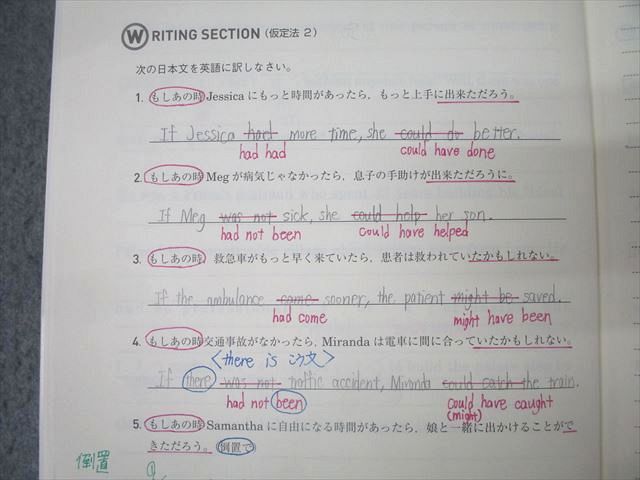 WRITING SECTION (仮定法 2)
次の日本文を英語に訳しなさい。
1. もしあの時 Jessica にもっと時間があったら，もっと上手に出来ただろう。
If Jessica had more time, she could do better.
had had could have done
2. もしあの時 Meg が病気じゃなかったら，息子の手助けが出来ただろうに。
If Meg was not sick, she could help her son.
had not been could have helped
3. もしあの時，救急車がもっと早く来ていたら，患者は救われていたかもしれない。
If the ambulance came sooner, the patient might be saved.
had come might have been
4. もしあの時交通事故がなかったら，Miranda は電車に間に合っていたかもしれない。
〈there is 構文〉
If there was not traffic accident, Miranda could catch the train.
had not been could have caught
(might)
5. もしあの時 Samantha に自由になる時間があったら，娘と一緒に出かけることがで
きただろう。（倒置で）
倒置